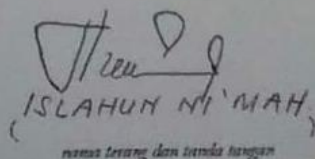 (ISLAHUN NI'MAH)
nama terang dan tanda tangan